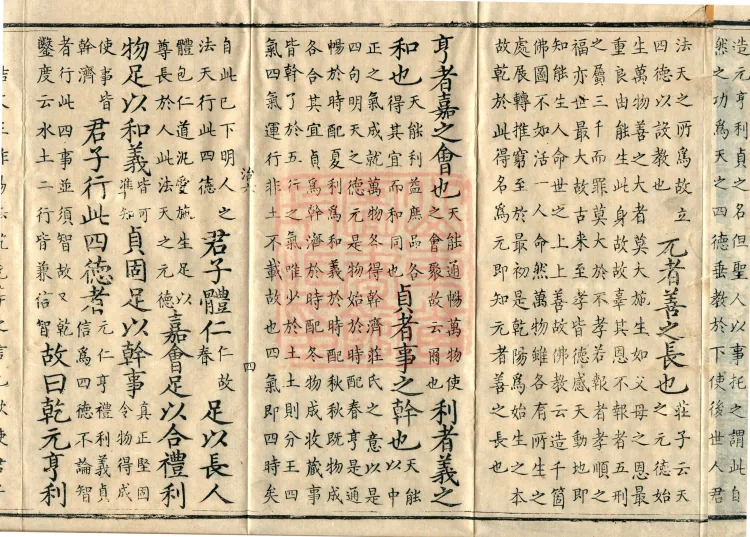 造元亨利貞之名但聖人以事托之謂此自
然之功爲天之四德垂教於下使後世人君
法天之所爲故立
四德以設教也
元者善之長也
莊子云天
之元德始
生萬物善之大者莫大施生如父母之恩最
重良由能生此身故故辜其恩不報者五刑
之屬三千而罪莫大於不孝若報者孝順之
福亦世最大故古來至孝皆德感天動地即
知能生人命世之上善故佛教云造千箇
佛圖不如活一人命然萬物雖各有所生之
處展轉推窮至於最初是乾陽爲始生之本
故乾得名爲元即知元者善之長也
亨者嘉之會也
天能通暢萬物使
之會聚故云爾也
利者義之
和也
天能利益庶品各
得其宜而和同也
貞者事之幹也
天能
以中
正之氣成就萬物各得幹濟莊氏之意以是
四句明天之德元是物始於時配春亨是通
暢於時配夏利爲和義於時配秋秋既物成
各合其宜貞爲幹濟於時配冬物成收藏事
皆幹了於五行之氣唯少於土土則分王四
氣四氣運行非土不載故也四氣即四時矣
四
自此已下明人之
法天行此四德
君子體仁
仁故
春
足以長人
體包仁道汎愛施生足以
尊長於人此法天之元德
嘉會足以合禮利
物足以和義
皆可
準知
貞固足以幹事
真正堅固
令物得成
使事皆
幹濟
君子行此四德者
元仁亨禮利義貞
信爲四德不論智
者行此四事並須智故又乾
鑿度云水土二行皆兼信智
故曰乾元亨利